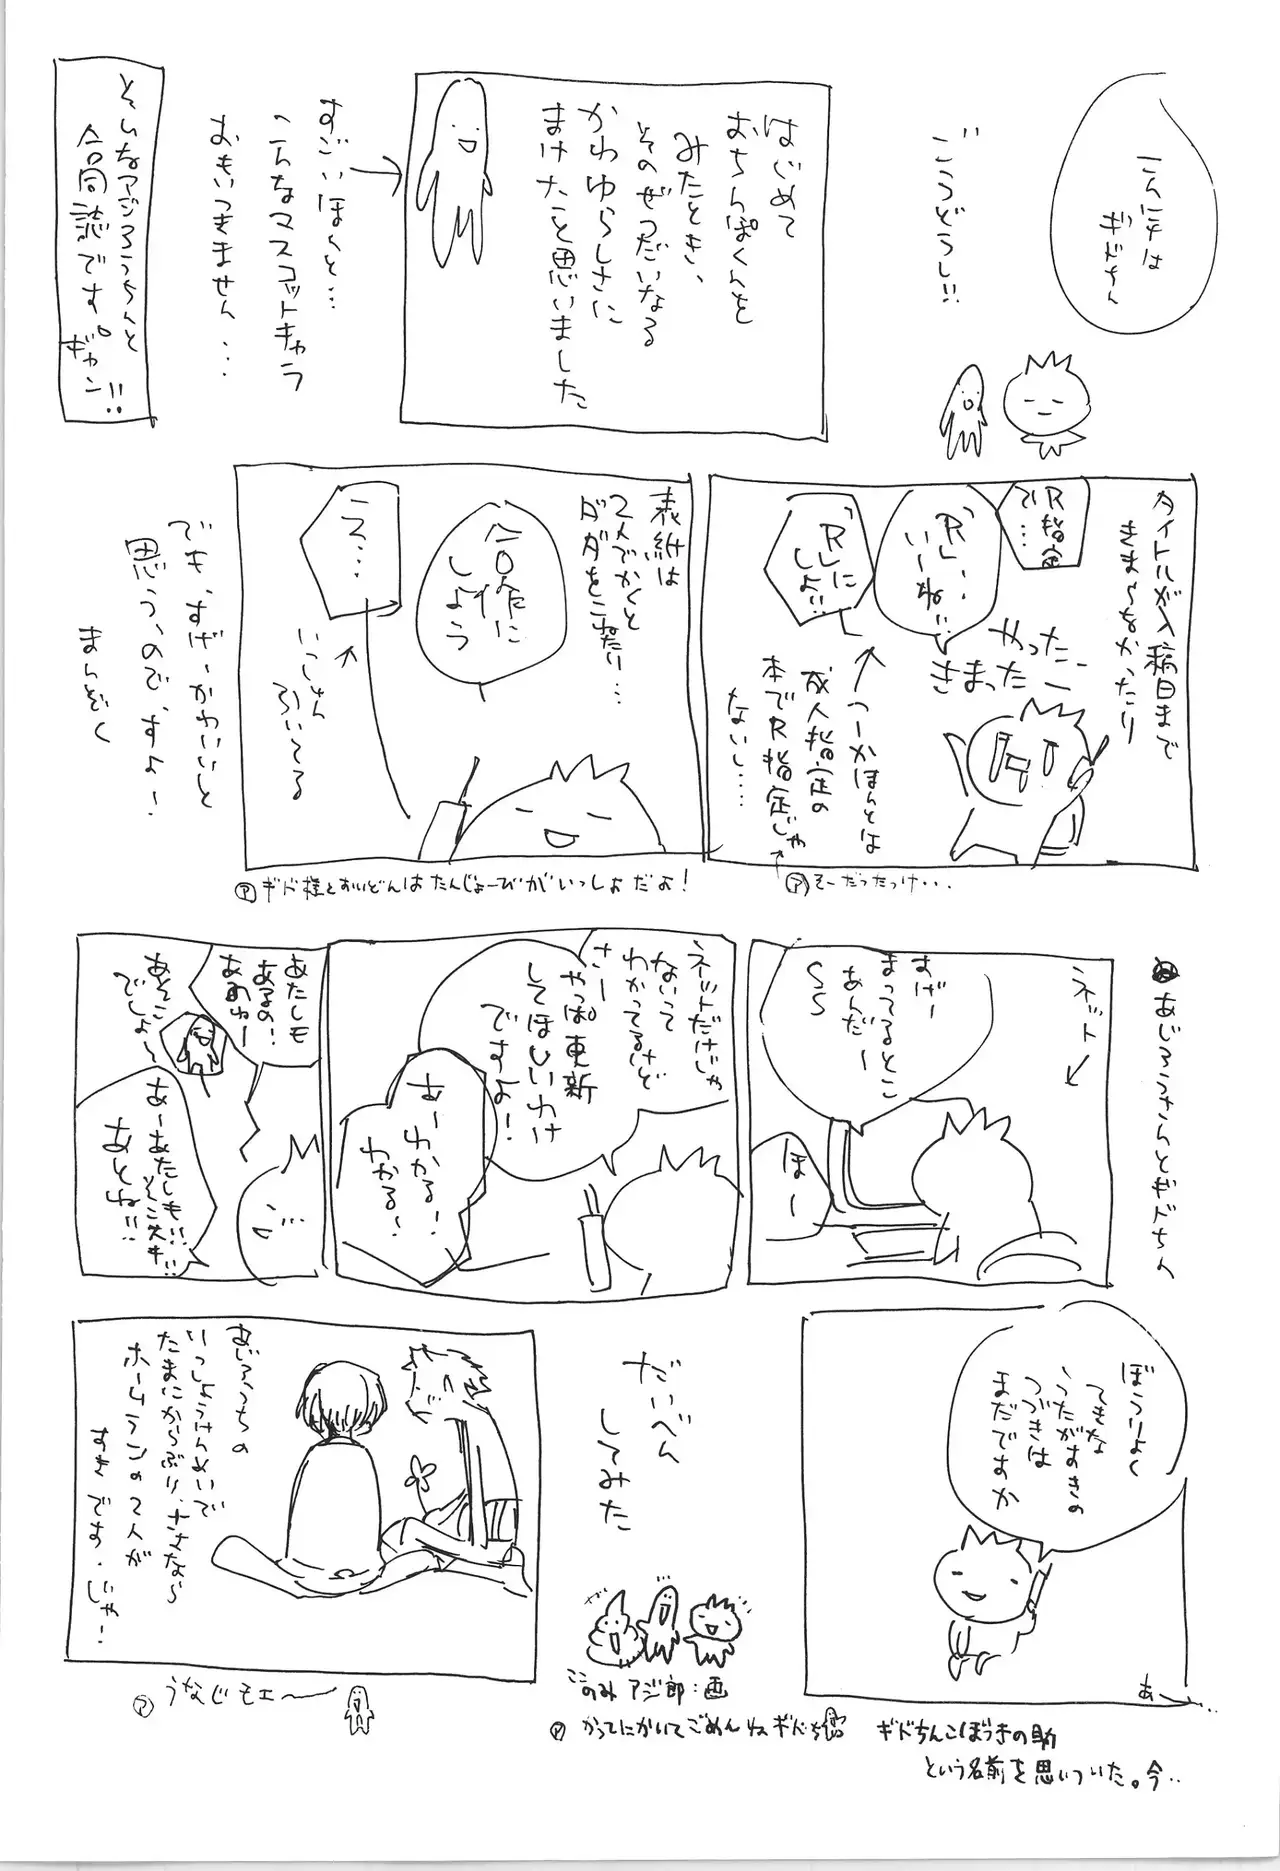 こんにちは
ギドちん
ごうどうし!!
はじめて
おちんぽくんを
みたとき、
そのぜつだいなる
かわゆらしさに
まけたと思いました
すごいほんと…
こんなマスコットキャラ
おもいつきません…
そんなアジろうちんと
合同誌です。ギャン!!
タイトルが入稿日まで
きまらなかったり
R指定
で…
「R」…
いーね…
「R」に
しよ!!
やったー
きまったー
つーかほんとは
成人指定の
本でR指定じゃ
ないし…
ア そーだったっけ・・・
表紙は
2人でかくと
ダダをこねたり…
合作に
しよう
え…
いっしゅん
引いてる
ア ギド様とおいどんはたんじょーびがいっしょだよ!
でも、すげーかわいいと
思うのですよー
まんぞく
あじろうさんとギドちん
ネット
おげー
まってるとこ
あんだー
SS
ほー
ネットだけじゃ
ないって
わかってるけど
さー
やっぱ更新
してほしいわけ
ですよ!
あーわかる!
わかる!
あたしも
あるの!
あそこ
でしょ〜
あーあたしも!!
あとね!!
ぼうりょく
てきな
うたがすきの
つづきは
まだですか
あー…
だいべん
してみた
ここのみ アジ郎:画
ア かってにかいてごめんねギドち
ギドちんこぼうきの助
という名前を思いついた。今…
あじろうちの
いっしょうけんめいで
たまにからぶり、ナさなら
ホームランの2人が
すきです・じゃ!
ア うなじモエ〜